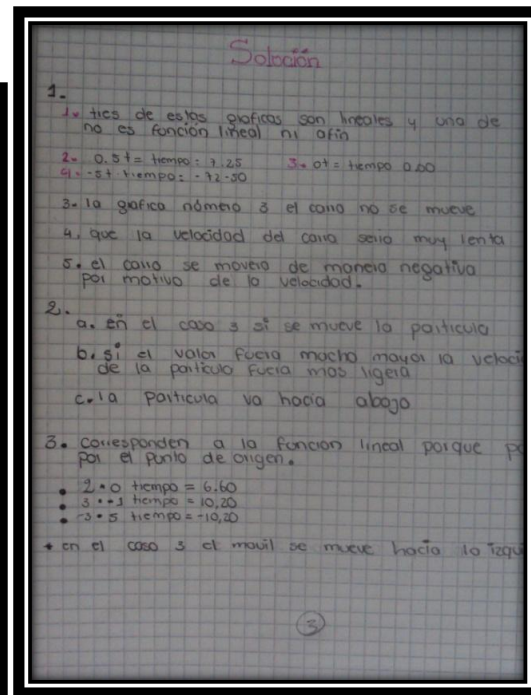 Solución
1.
1. tres de estas graficas son lineales y una de
no es función lineal ni afin
2- 0.5t = tiempo: 7.25 3. 0t = tiempo 0.00
4. -5t tiempo: -72.50
3- la grafica número 3 el carro no se mueve
4. que la velocidad del carro seria muy lenta
5. el carro se movera de manera negativa
por motivo de la velocidad.
2.
a. en el caso 3 si se mueve la particula
b. si el valor fuera mucho mayor la veloci
de la particula fuera mas ligera
c. la particula va hacia abajo
3. corresponden a la funcion lineal porque p
por el punto de origen.
• 2•0 tiempo = 6.60
• 3••1 tiempo = 10,20
• -3•5 tiempo = -10,20
* en el caso 3 el movil se mueve hacia la izqu
3